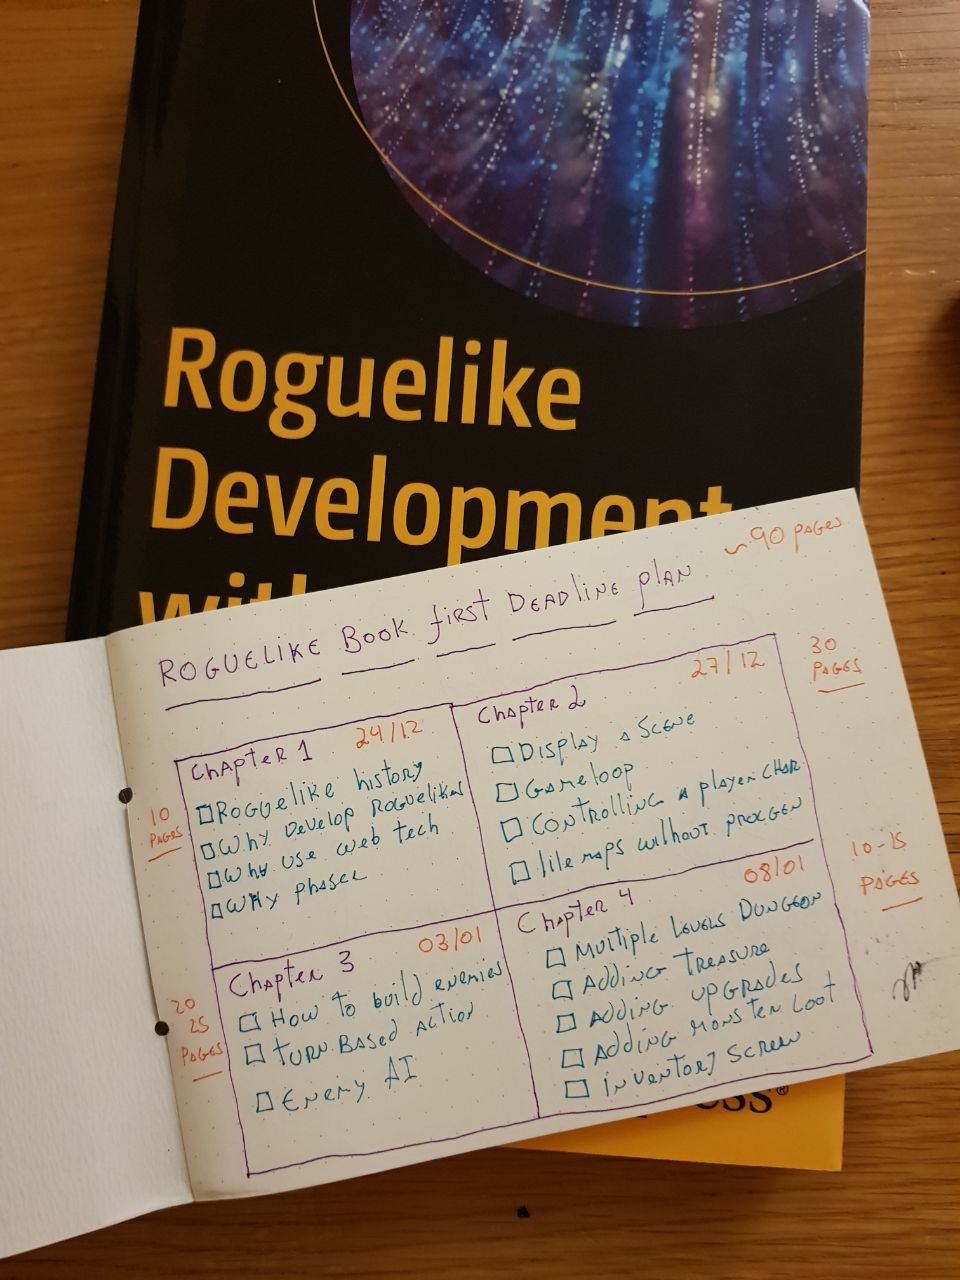 Roguelike
Development
with
~90 PAGES
ROGUELIKE BOOK first DEADLINE plan
Chapter 1 24/12
Roguelike history
Why Develop Roguelikes
Why use web tech
Why phaser
10
PAGES
Chapter 2 27/12
Display a Scene
Gameloop
Controlling a player char
tile maps without procgen
30
PAGES
Chapter 3 03/01
How to build enemies
Turn Based action
Enemy AI
20
25
PAGES
Chapter 4 08/01
Multiple Levels Dungeon
Adding treasure
Adding upgrades
Adding monster loot
inventory screen
10-15
PAGES